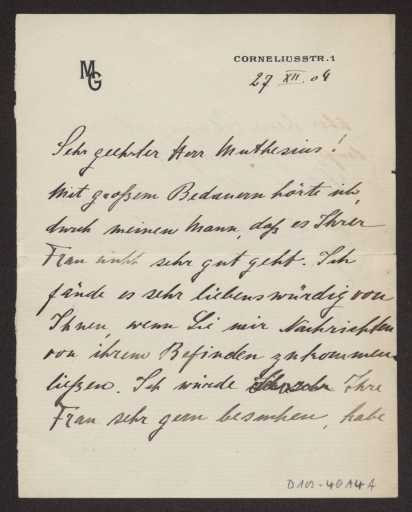 MG
CORNELIUSSTR. 1
27 XII. 04
Sehr geehrter Herr Muthesius!
Mit großem Bedauern hörte ich,
durch meinen Mann, daß es Ihrer
Frau nicht sehr gut geht. Ich
fände es sehr liebenswürdig von
Ihnen, wenn Sie mir Nachrichten
von ihrem Befinden zukommen
ließen. Ich würde Ihre
Frau sehr gern besuchen, habe